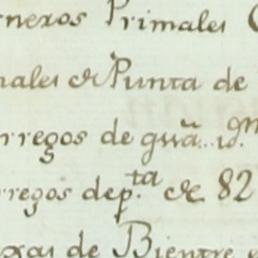 rneros Primales
nales de Punta de
rregos de gu.ª
rregos de p.ta de 82
exas de Bientre